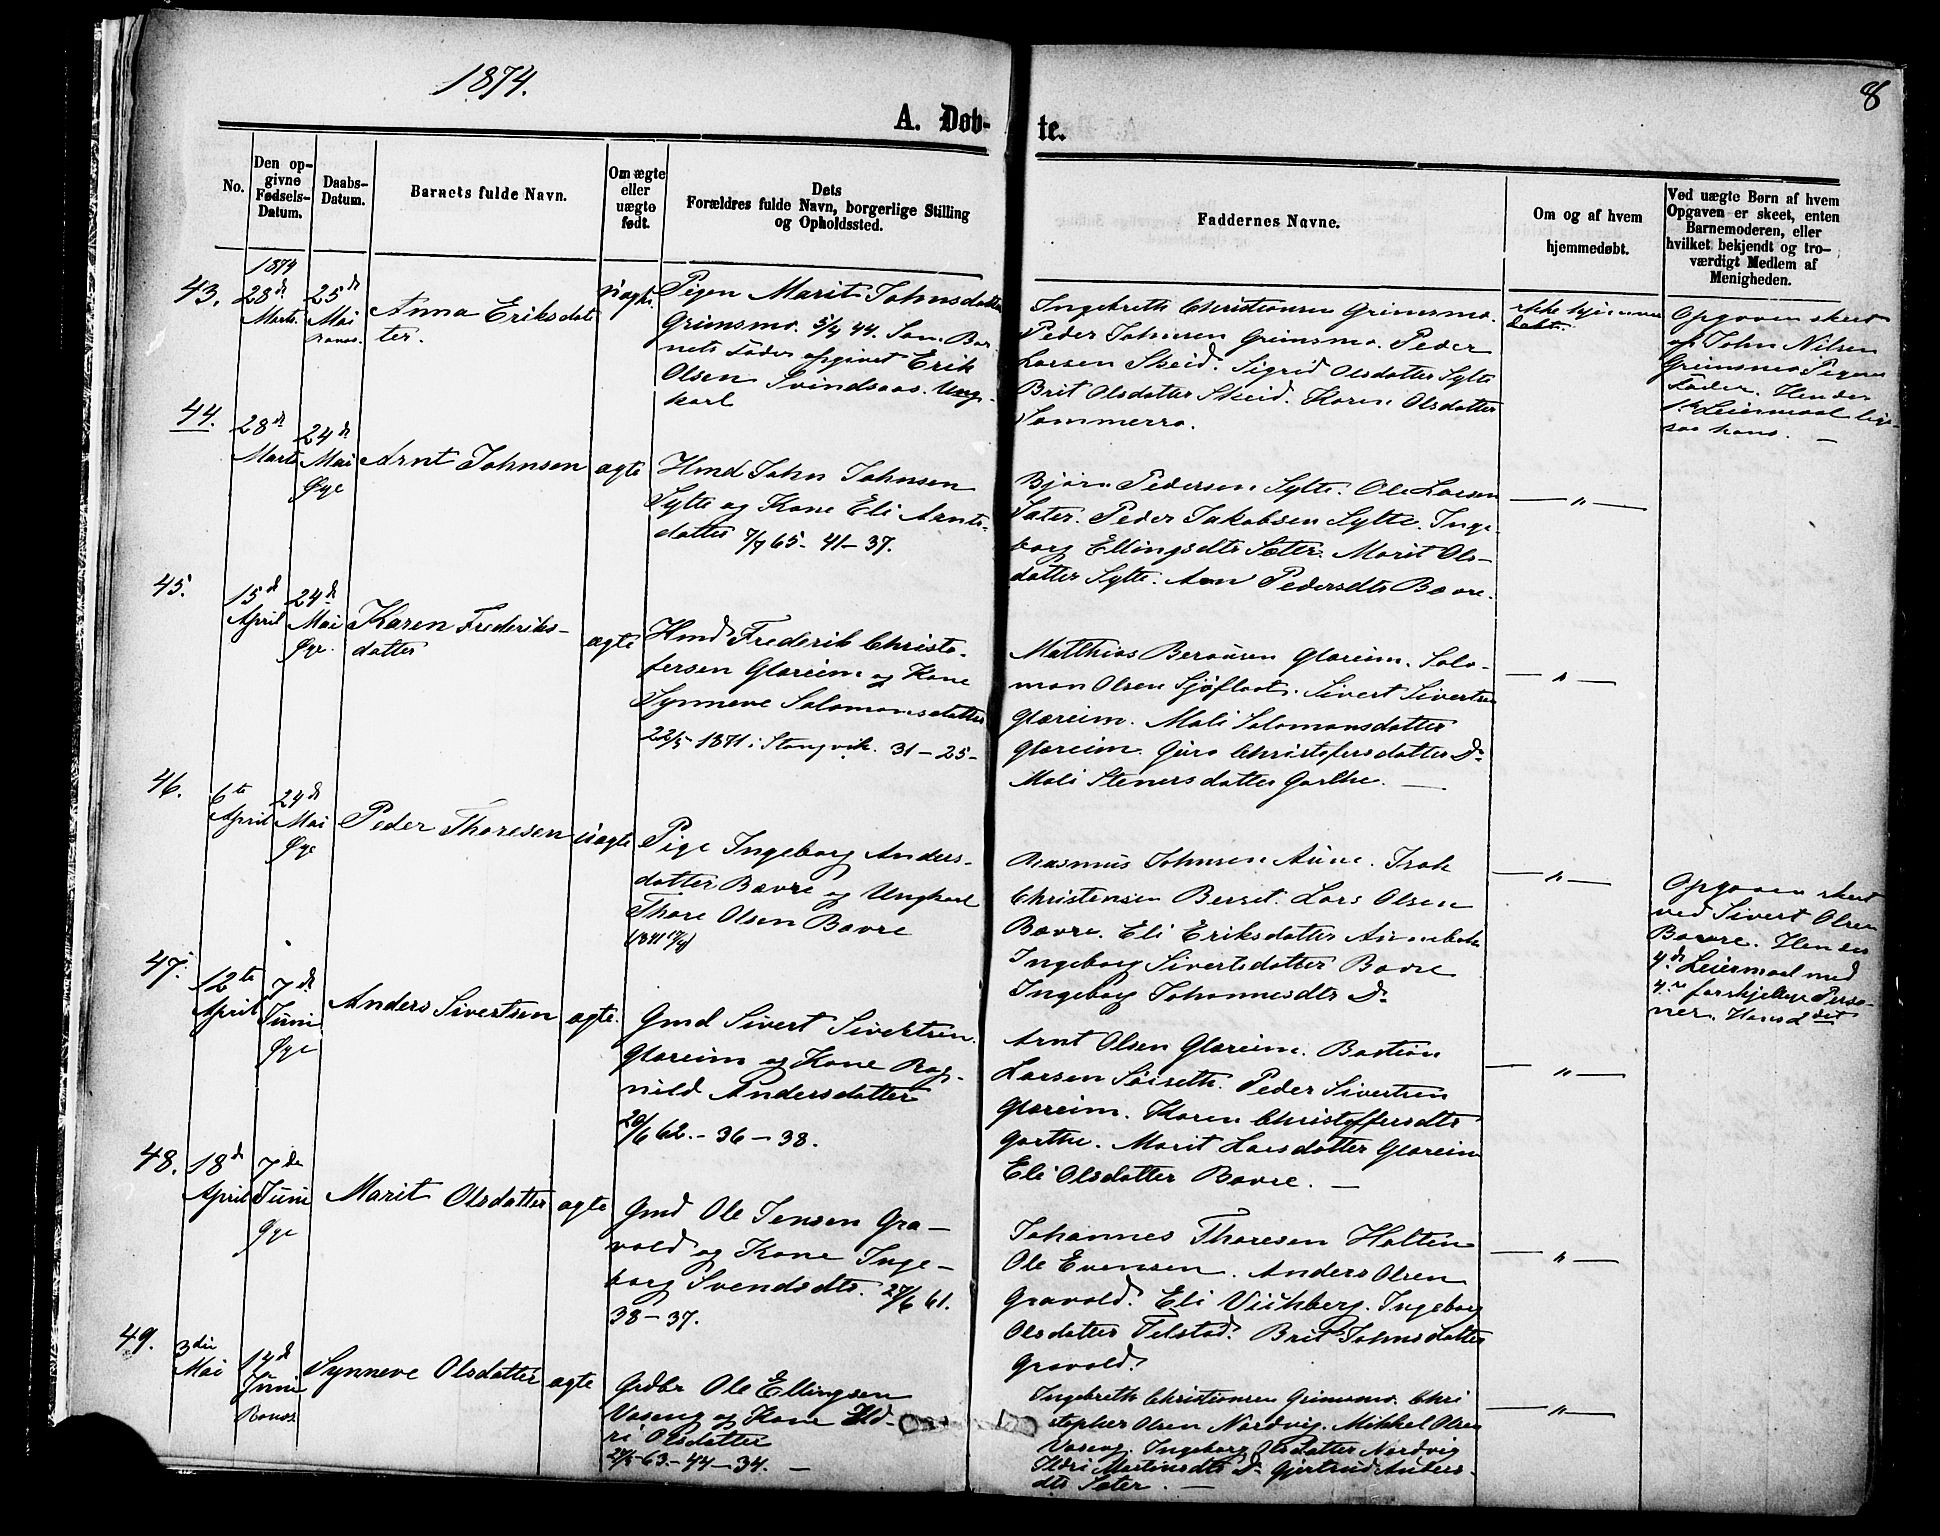 1874.
8
A. Døb-
te.
No.
Den op-
givne
Fødsels-
Datum.
Daabs-
Datum.
Barnets fulde Navn.
Om ægte
eller
uægte
født.
Dets
Forældres fulde Navn, borgerlige Stilling
og Opholdssted.
Faddernes Navne.
Om og af hvem
hjemmedøbt.
Ved uægte Børn af hvem
Opgaven er skeet, enten
Barnemoderen, eller
hvilket bekjendt og tro-
værdigt Medlem af
Menigheden.
43.
1874
28d
Marts
25d
Mai
Ranæs
Anna Eriksdat
ter.
uægte
Pigen Marit Johnsdatter
Grimsmo. 5/4 44. Som Bar
nets Fader opgivet Erik
Olsen Svindsaas. Ung-
karl
Ingebreth Christiansen Grimsmo.
Peder Johnsen Grimsmo. Peder
Larsen Skeid. Sigrid Olsdatter Sylte
Brit Olsdatter Skeid. Karen Olsdatter
Sommerro.
ikke hjemme
døbt.
Opgaven skeet
af John Nilsen
Grimsmo Pigens
Fader. Hendes
1ste Leiermaal lige-
saa hans. —
44.
28d
Marts
24d
Mai
Øye
Arnt Johnsen
ægte
Hmd John Johnsen
Sylte og Kone Eli Arnts-
datter 7/7 65 - 41 - 37.
Bjørn Pedersen Sylte. Ole Larsen
Sæter. Peder Jakobsen Sylte. Inge-
borg Ellingsdtr Sæter. Marit Ols-
datter Sylte. Ann Pedersdtr Bævre.
— " —
45.
15d
April
24d
Mai
Øye.
Karen Frederiks-
datter
ægte
Hmd Frederik Christo-
fersen Glæreim og Kone
Synneve Salomonsdatter
22/5 1871 i Stangvik. 31 - 25 -
Matthias Bersvensen Glæreim. Salo-
mon Olsen Sjøflaat. Sivert Sivertsen
Glæreim. Mali Salomonsdatter
Glæreim. Guro Christofersdatter Do
Mali Stenersdatter Garthe. —
— " —
46.
6te
April
24d
Mai
Øye
Peder Thoresen
uægte
Pige Ingeborg Anders-
datter Bævre og Ungkarl
Thore Olsen Bævre
Rasmus Johnsen Aune. Isak
Christensen Berset. Lars Olsen
Bævre. Eli Eriksdatter
Ingeborg Sivertsdatter Bævre
Ingeborg Johannesdtr Do
— " —
Opgaven skeet
ved Sivert Olsen
Bævre. Hendes
4d Leiermaal med
4re forskjellige Perso-
ner. Hans 2det
47.
12te
April
7de
Juni
Øye
Anders Sivertsen
ægte.
Gmd Sivert Sivertsen
Glæreim og Kone Rag-
nild Andersdatter
20/6 62. - 36 - 38.
Arnt Olsen Glæreim. Bastian
Larsen Søiseth. Peder Sivertsen
Glæreim. Karen Christoffersdtr
Garthe. Marit Larsdatter Glæreim
Eli Olsdatter Bævre. —
— " —
48.
18d
April
7de
Juni
Øye
Marit Olsdatter
ægte
Gmd Ole Jensen Gra-
vold og Kone Inge-
borg Svendsdtr. 27/6 61.
38 - 37.
Johannes Thoresen Holten
Ole Evensen. Anders Olsen
Gravold. Eli Vickberg. Ingeborg
Olsdatter Telstad. Brit Johnsdatter
Gravold.
— " —
49.
3die
Mai
14d
Juni
Ranæs
Synneve Olsdatter
ægte
Grdbr Ole Ellingsen
Vaseng og Kone Ild-
ri Olsdatter
63 - 44 - 34. —
Ingebreth Christiansen Grimsmo. Chri
stopher Olsen Nordvig. Mikkel Olsen
Vaseng. Ingeborg Olsdatter Nordvig
Ildri Martinsdtr Do Gjertrud Anders-
dtr Sæter. —
— " —